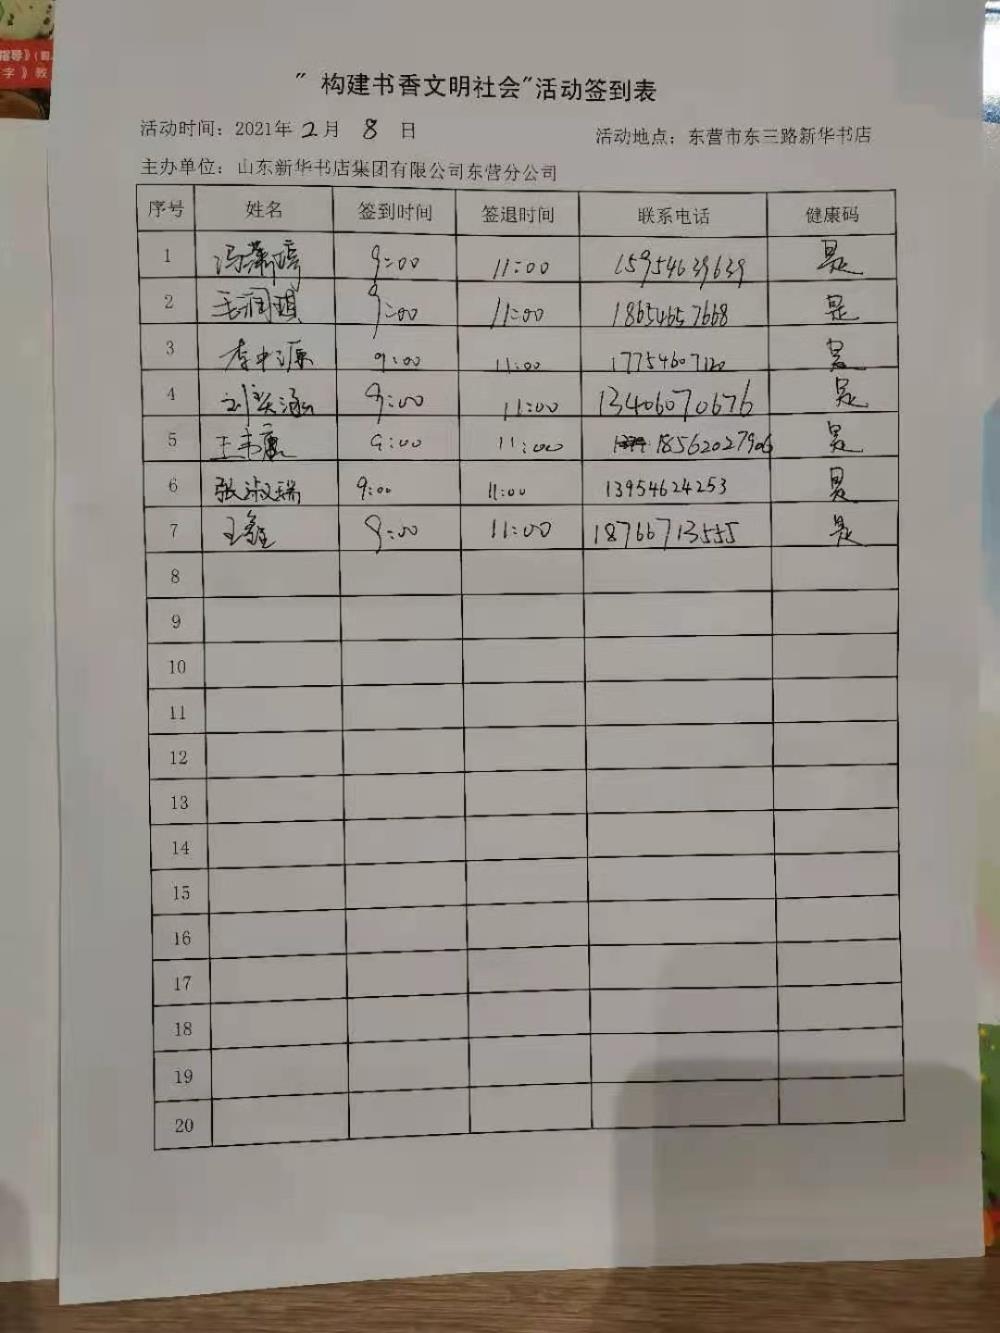 指导》(
字》教
"构建书香文明社会"活动签到表
活动时间：2021年 2月 8 日 活动地点：东营市东三路新华书店
主办单位：山东新华书店集团有限公司东营分公司
序号 姓名 签到时间 签退时间 联系电话 健康码
1 冯 9:00 11:00 15954639639 是
2 毛润琪 9:00 11:00 18654657668 是
3 李中源 9:00 11:00 17754607120 是
4 刘奕涵 9:00 11:00 13406070676 是
5 王韦康 9:00 11:00 18562027906 是
6 张淑瑞 9:00 11:00 13954624253 是
7 王鑫 9:00 11:00 18766713555 是
8
9
10
11
12
13
14
15
16
17
18
19
20